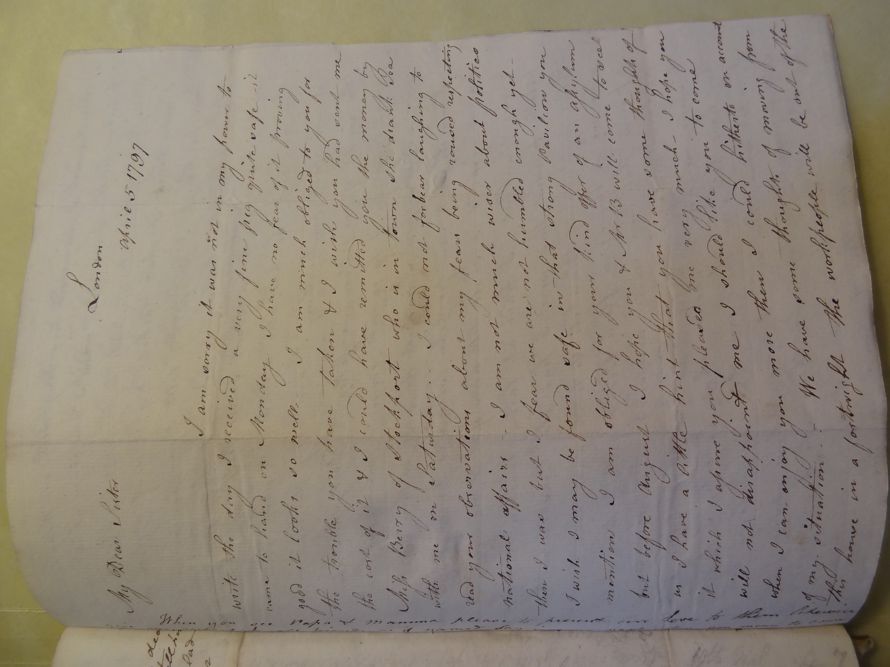 London
April 5 1797
My Dear Sister
I am sorry it was not in my power to
write the day I received a very fine pig quite safe it
came to hand on Monday I have no fear of it proving
good it looks so well. I am much obliged to you for
the trouble you have taken & I wish you had sent me
the cost of it & I could have remitted you the money by
Miss Berry of Stockport who is in town she drank Tea
with me on Saturday.. I could not forbear laughing to
read your observations about my fears being roused respecting
national affairs - I am not much wiser about politics
then I was but I fear we are not humbled enough yet -
I wish I may be found safe in that strong Pavilion you
mention I am obliged for your kind offer of an assylum
but before August I hope you & Mr B will come to see
us I have a little hint that you have some thoughts of
it which I assure you pleases me very much - I hope you
will not disappoint me I should like you to come
when I can enjoy you more then I could hitherto on account
of my situation. - We have some thoughts of moving from
this house in a fortnight the workpeople will be out of the
When you see Papa & mamma please to present our love to them likewise